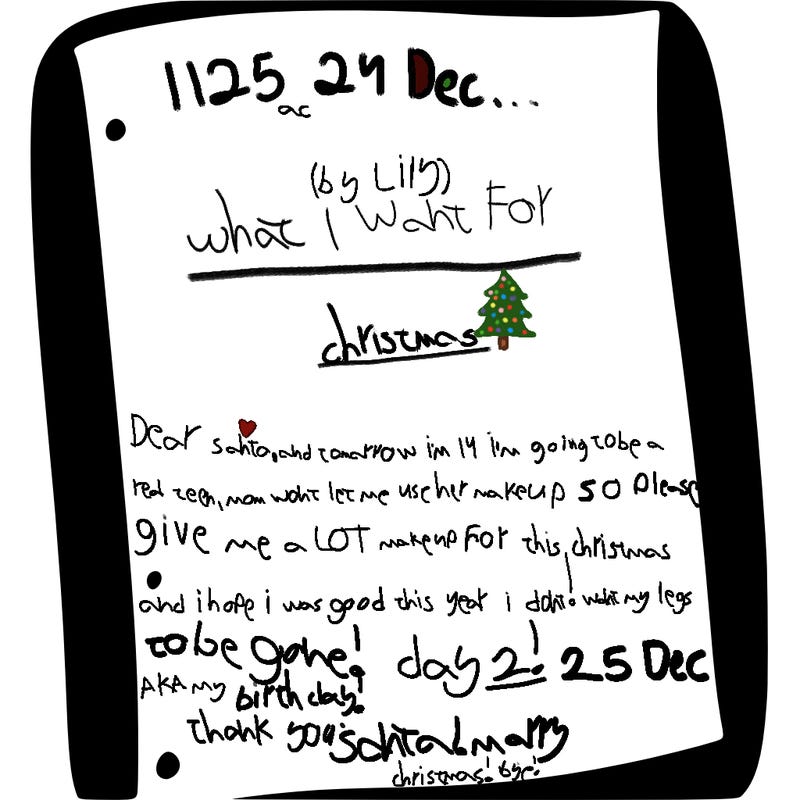 1125 24 Dec...
ac
(by Lily)
what I want For
christmas
Dear santa, and tomarrow im 14 i'm going to be a
real teen, mom wont let me use her makeup SO Please
give me a LOT makeup For this christmas
and i hope i was good this year i dont want my legs
to be gone! day 2! 25 Dec
AKA my birthday!
thank you santa! marry
christmas! bye!